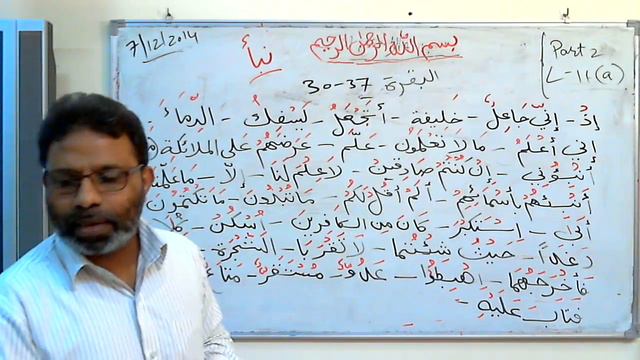 7/12/2014
بسم الله الرحمن الرحيم
Part 2
L-11(a)
نبأ
البقرة 37-30
إذْ - إنّي جَاعِلٌ - خَليفة - أتَجْعَلُ - يَسْفِكُ - الدِّمَاءَ
إنّي أعْلَمُ - مَا لَا تَعْلَمُونَ - عَلَّمَ - عَرَضَهُمْ عَلَى المَلَائِكَة
أنْبِئُوني - إنْ كُنْتُمْ صَادِقِينَ - لَا عِلْمَ لَنَا - إلّا - مَا عَلَّمْتَنَا
أنْبِئْهُمْ بأسْمَائِهِمْ - ألَمْ أقُلْ لَكُمْ - مَا تُبْدُونَ - مَا تَكْتُمُونَ
أبَى - اسْتَكْبَرَ - كَانَ مِنَ الكَافِرِينَ - اُسْكُنْ - كُلَا
رَغَدًا - حَيْثُ شِئْتُمَا - لَا تَقْرَبَا - الشَّجَرَة
فَأخْرَجَهُمَا - اهْبِطُوا - عَدُوٌّ - مُسْتَقَرٌّ - مَتَاعٌ
فَتَابَ عَلَيْهِ -